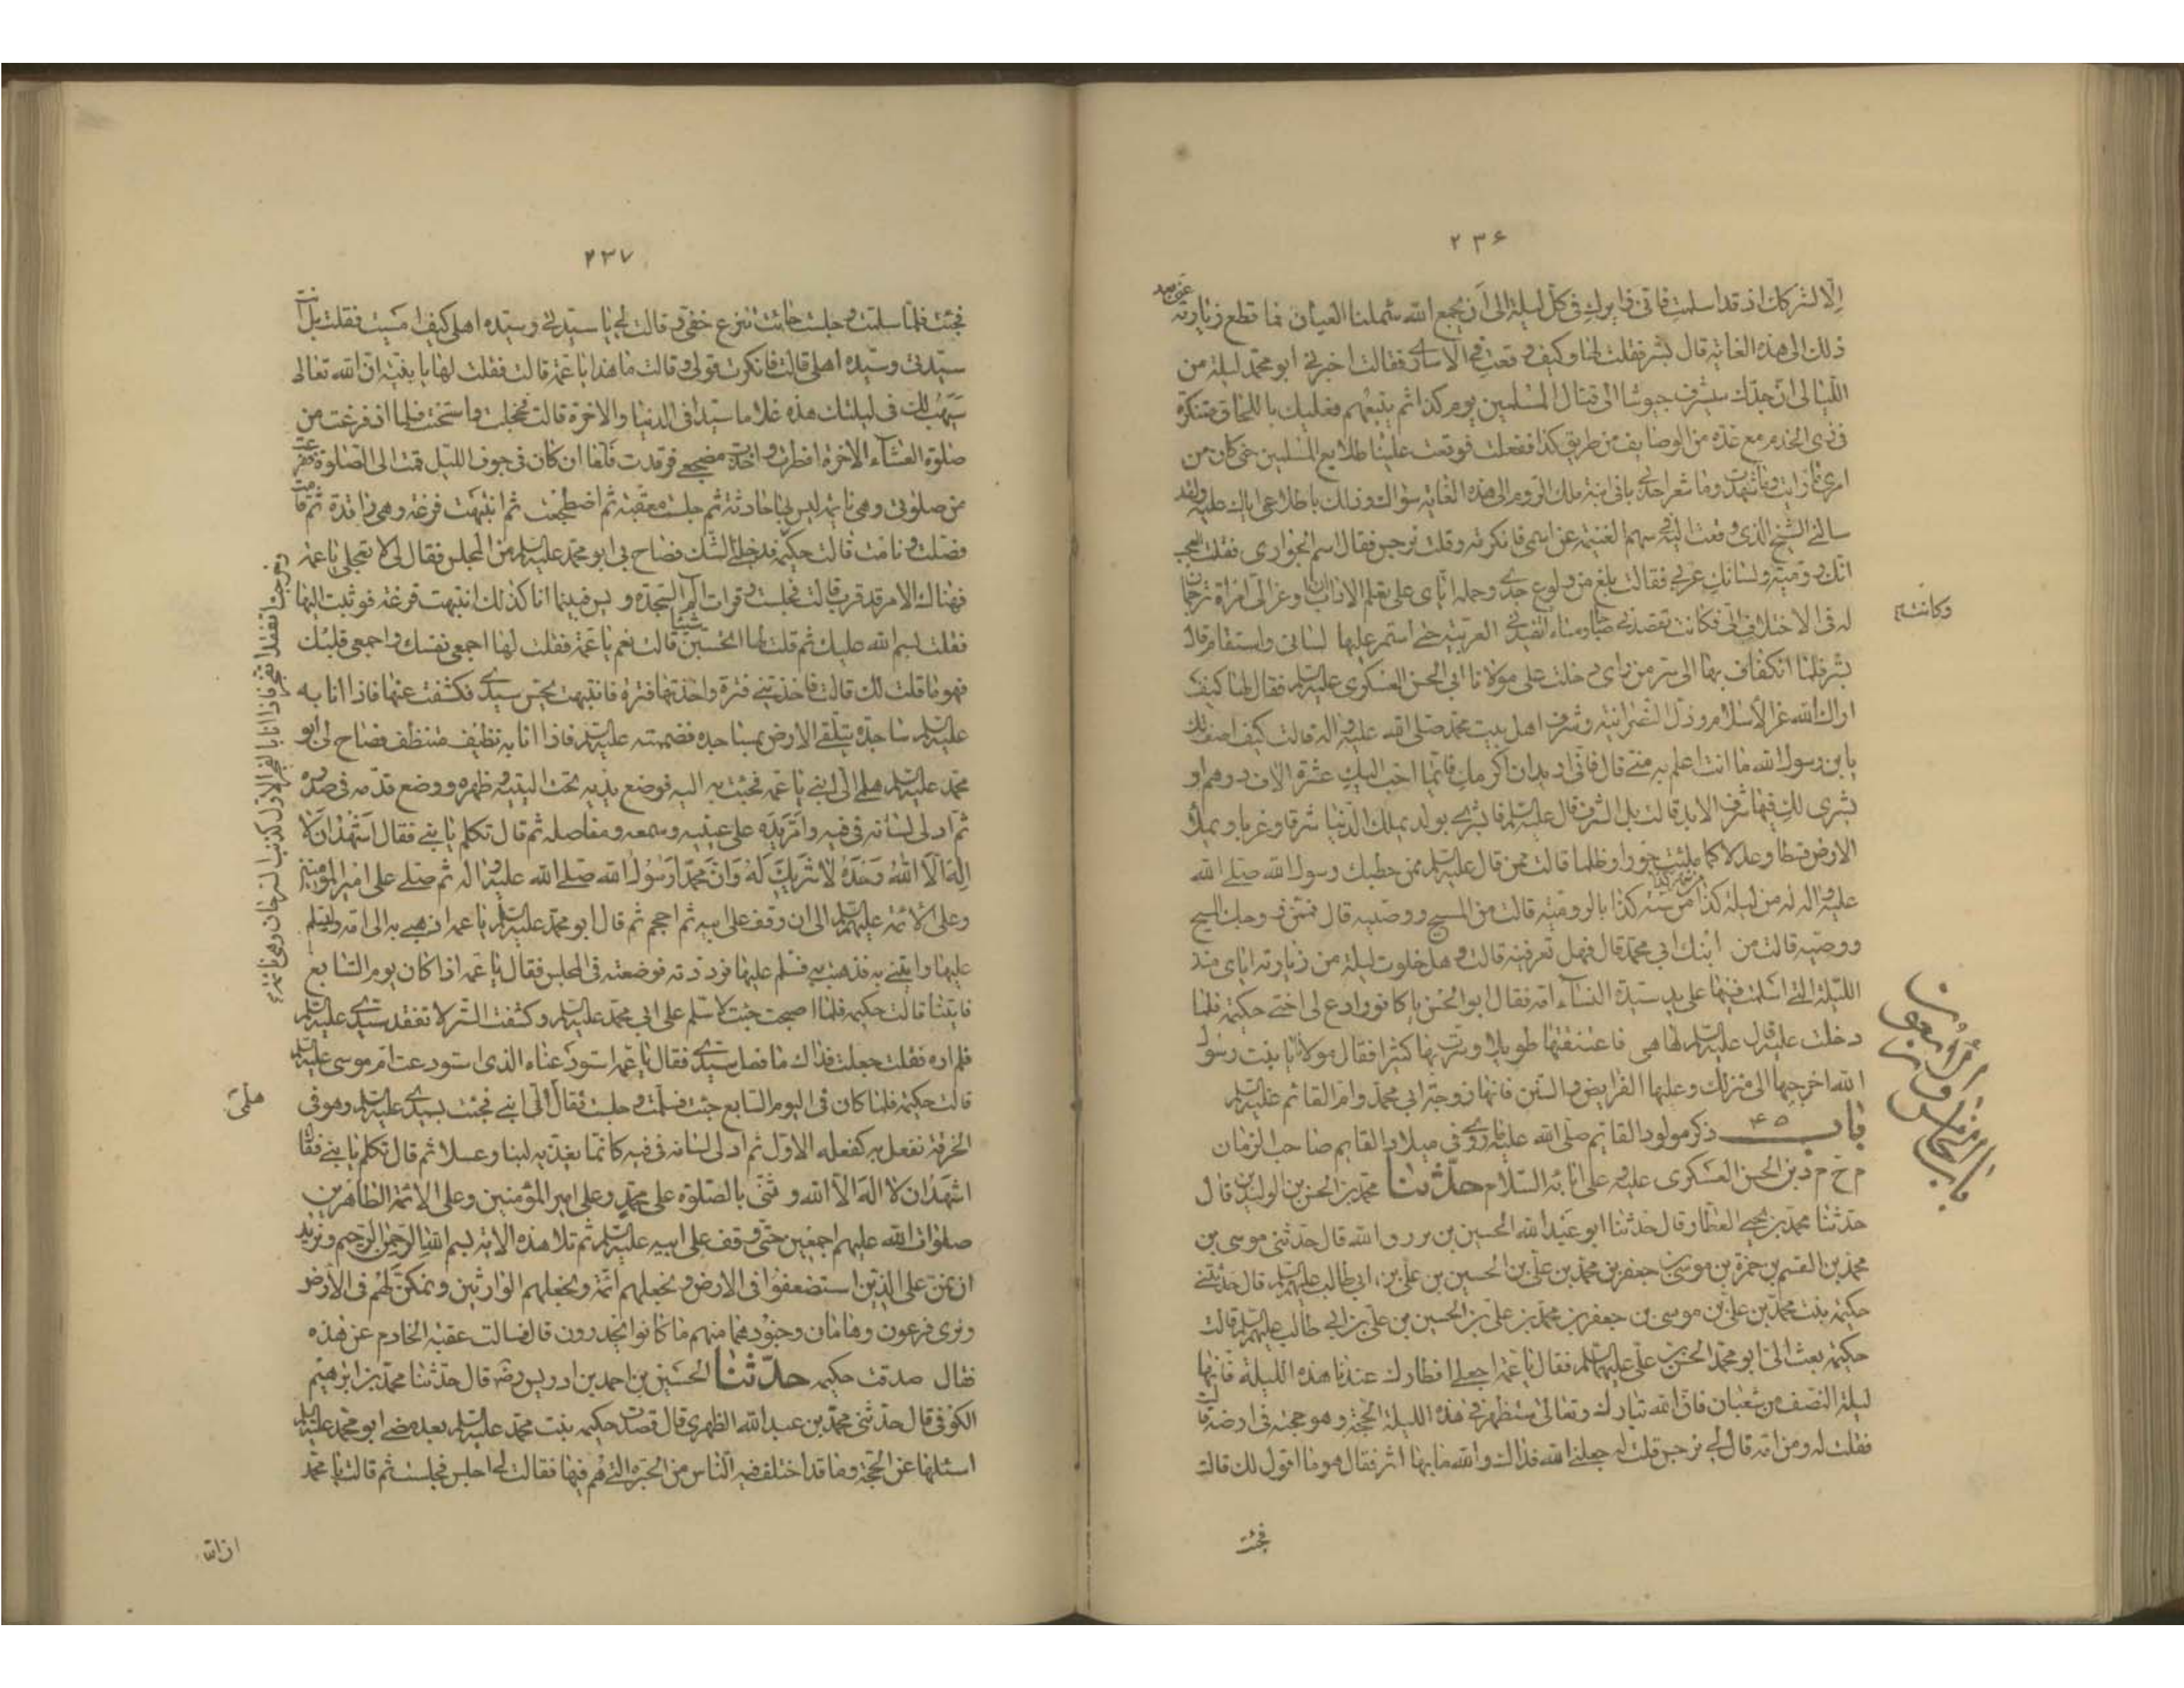 ۲۳۶
الا لشركك اذ قد اسلمت فانى زايرك فى كل ليلة الى ان يجمع الله شملنا فى العيان فما قطع زيارته عنى بعد
ذلك الى هذه الغاية قال بشر فقلت لها وكيف وقعت فى الاسارى فقالت اخبرنى ابو محمد ليلة من
الليالى ان جدك سيشرف جيوشا الى قتال المسلمين يوم كذا ثم يتبعهم فعليك باللحاق متنكرة
فى زى الخدم مع عدة من الوصايف من طريق كذا ففعلت فوقعت علينا طلايع المسلمين حتى كان من
امرى ما رايت وما شهدت وما شعر احد بى بانى ابنة ملك الروم الى هذه الغاية سواك وذلك باطلاعى اياك عليه ولقد
سالنى الشيخ الذى وقعت اليه فى سهم الغنيمة عن اسمى فانكرته وقلت نرجس فقال اسم الجوارى فقلت العجب
انك رومية ولسانك عربى فقالت بلغ من ولوع جدى وحمله اياى على تعلم الاداب ان اوعز الى امراة ترجمان
له فى الاختلاف الى فكانت تقصدنى صباحا ومساء تفيدنى العربية حتى استمر عليها لسانى واستقام قال
وكانت
بشر فلما انكفات بها الى سر من راى دخلت على مولانا ابى الحسن العسكرى عليه السلم فقال لها كيف
اراك الله عز الاسلام وذل النصرانية وشرف اهل بيت محمد صلى الله عليه واله قالت كيف اصف لك
يا بن رسول الله ما انت اعلم به منى قال فانى اريد ان اكرمك فايما احب اليك عشرة الاف درهم او
بشرى لك فيها شرف الابد قالت بل الشرف قال عليه السلم فابشرى بولد يملك الدنيا شرقا وغربا ويملا
الارض قسطا وعدلا كما ملئت جورا وظلما قالت ممن قال عليه السلم ممن خطبك رسول الله صلى الله
عليه واله له من ليلة كذا من سنة كذا بالرومية قالت من المسيح ووصيه قال فممن زوجك المسيح
ووصيه قالت من ابنك ابى محمد قال فهل تعرفينه قالت وهل خلوت ليلة من زيارته اياى منذ
الليلة التى اسلمت فيها على يد سيدة النساء امه فقال ابو الحسن يا كافور ادع لى اختى حكيمة فلما
دخلت عليه قال عليه السلم لها ها هى فاعتنقتها طويلا وسرت بها كثيرا فقال مولانا يا بنت رسول
الله اخرجيها الى منزلك وعلميها الفرايض والسنن فانها زوجة ابى محمد وام القائم عليه السلم
باب ۴۵ ذكر مولود القايم صلى الله عليه ما روى فى ميلاد القايم صاحب الزمان
م ح م د بن الحسن العسكرى عليه وعلى ابائه السلام حدثنا محمد بن الحسن بن الوليد قال
حدثنا محمد بن يحيى العطار قال حدثنا ابو عبد الله الحسين بن الله قال حدثنى موسى بن
محمد بن القسم بن حمزة بن موسى بن جعفر بن محمد بن على بن الحسين بن على بن ابى طالب عليهم السلم قال حدثتنى
حكيمة بنت محمد بن على بن موسى بن جعفر بن محمد بن على بن الحسين بن على بن ابى طالب عليهم السلم قالت
حكيمة بعث الى ابو محمد الحسن بن على عليهما السلم فقال يا عمه اجعلى افطارك عندنا هذه الليلة فانها
ليلة النصف من شعبان فان الله تبارك وتعالى سيظهر فى هذه الليلة الحجة وهو حجته فى ارضه قالت
فقلت له ومن امه قال لى نرجس قلت له جعلنى الله فداك والله ما بها اثر فقال هو ما اقول لك قالت
فجئت
۲۳۷
فجئت فلما سلمت وجلست جائت تنزع خفى وقالت لى يا سيدتى وسيدة اهلى كيف امسيت فقلت بل انت
سيدتى وسيدة اهلى قالت فانكرت قولى وقالت ما هذا يا عمة قالت فقلت لها يا بنية ان الله تعالى
سيهب لك فى ليلتك هذه غلاما سيدا فى الدنيا والاخرة قالت فخجلت واستحيت فلما ان فرغت من
صلوة العشاء الاخرة افطرت واخذت مضجعى فرقدت فلما ان كان فى جوف الليل قمت الى الصلوة ففرغت
من صلوتى وهى نائمة ليس بها حادثة ثم جلست معقبة ثم اضطجعت ثم انتبهت فزعة وهى راقدة ثم قامت
فصلت ونامت قالت حكيمة فدخلنى الشك فصاح بى ابو محمد عليه السلم من المجلس فقال لى لا تعجلى يا عمه
وخرجت اتفقد الفجر فاذا انا بالفجر الاول كذنب السرحان وهى نائمة
فهناك الامر قد قرب قالت فجلست وقرات الم السجدة ويس فبينما انا كذلك انتبهت فزعة فوثبت اليها
فقلت بسم الله عليك ثم قلت لها اتحسين شيئا قالت نعم يا عمة فقلت لها اجمعى نفسك واجمعى قلبك
فهو ما قلت لك قالت فاخذتنى فترة واخذتها فترة فانتبهت بحس سيدى فكشفت عنها فاذا انا به
عليه السلم ساجدا يتلقى الارض بمساجده فضممته عليه السلم فاذا انا به نظيف متنظف فصاح لى ابو
محمد عليه السلم هلمى الى ابنى يا عمه فجئت به اليه فوضع يديه تحت اليتيه وظهره ووضع قدمه فى صدره
ثم ادلى لسانه فى فيه وامر يده على عينيه وسمعه ومفاصله ثم قال تكلم يا بنى فقال اشهد ان لا
اله الا الله وحده لا شريك له وان محمدا رسول الله صلى الله عليه واله ثم صلى على امير المؤمنين
وعلى الائمة عليهم السلم الى ان وقف على ابيه ثم احجم ثم قال ابو محمد عليه السلم يا عمه اذهبى به الى امه ليسلم
عليها وايتنى به فذهبت به فسلم عليها فرددته فوضعته فى المجلس فقال يا عمه اذا كان يوم السابع
فايتنا قالت حكيمه فلما اصبحت جئت لاسلم على ابى محمد عليه السلم وكشفت الستر لاتفقد سيدى عليه السلم
فلم اره فقلت جعلت فداك ما فعل سيدى فقال يا عمه استودعناه الذى استودعت ام موسى عليه السلم
قالت حكيمة فلما كان فى اليوم السابع جئت فسلمت وجلست فقال الى ابنى فجئت بسيدى عليه السلم وهو فى
هلمى
الخرقة ففعل به كفعله الاول ثم ادلى لسانه فى فيه كانما يغذيه لبنا وعسلا ثم قال تكلم يا بنى فقال
اشهد ان لا اله الا الله وثنى بالصلوة على محمد وعلى امير المؤمنين وعلى الائمة الطاهرين
صلوات الله عليهم اجمعين حتى وقف على ابيه عليه السلم ثم تلا هذه الاية بسم الله الرحمن الرحيم ونريد
ان نمن على الذين استضعفوا فى الارض ونجعلهم ائمة ونجعلهم الوارثين ونمكن لهم فى الارض
ونرى فرعون وهامان وجنودهما منهم ما كانوا يحذرون قال فسالت عقبة الخادم عن هذه
فقال صدقت حكيمه حدثنا الحسين بن احمد بن ادريس رضه قال حدثنا محمد بن ابرهيم
الكوفى قال حدثنى محمد بن عبد الله الطهرى قال قصدت حكيمه بنت محمد عليه السلم بعد مضى ابو محمد عليه السلم
اسئلها عن الحجة وما قد اختلف فيه الناس من الحيرة التى هم فيها فقالت لى اجلس فجلست ثم قالت يا محمد
ان الله